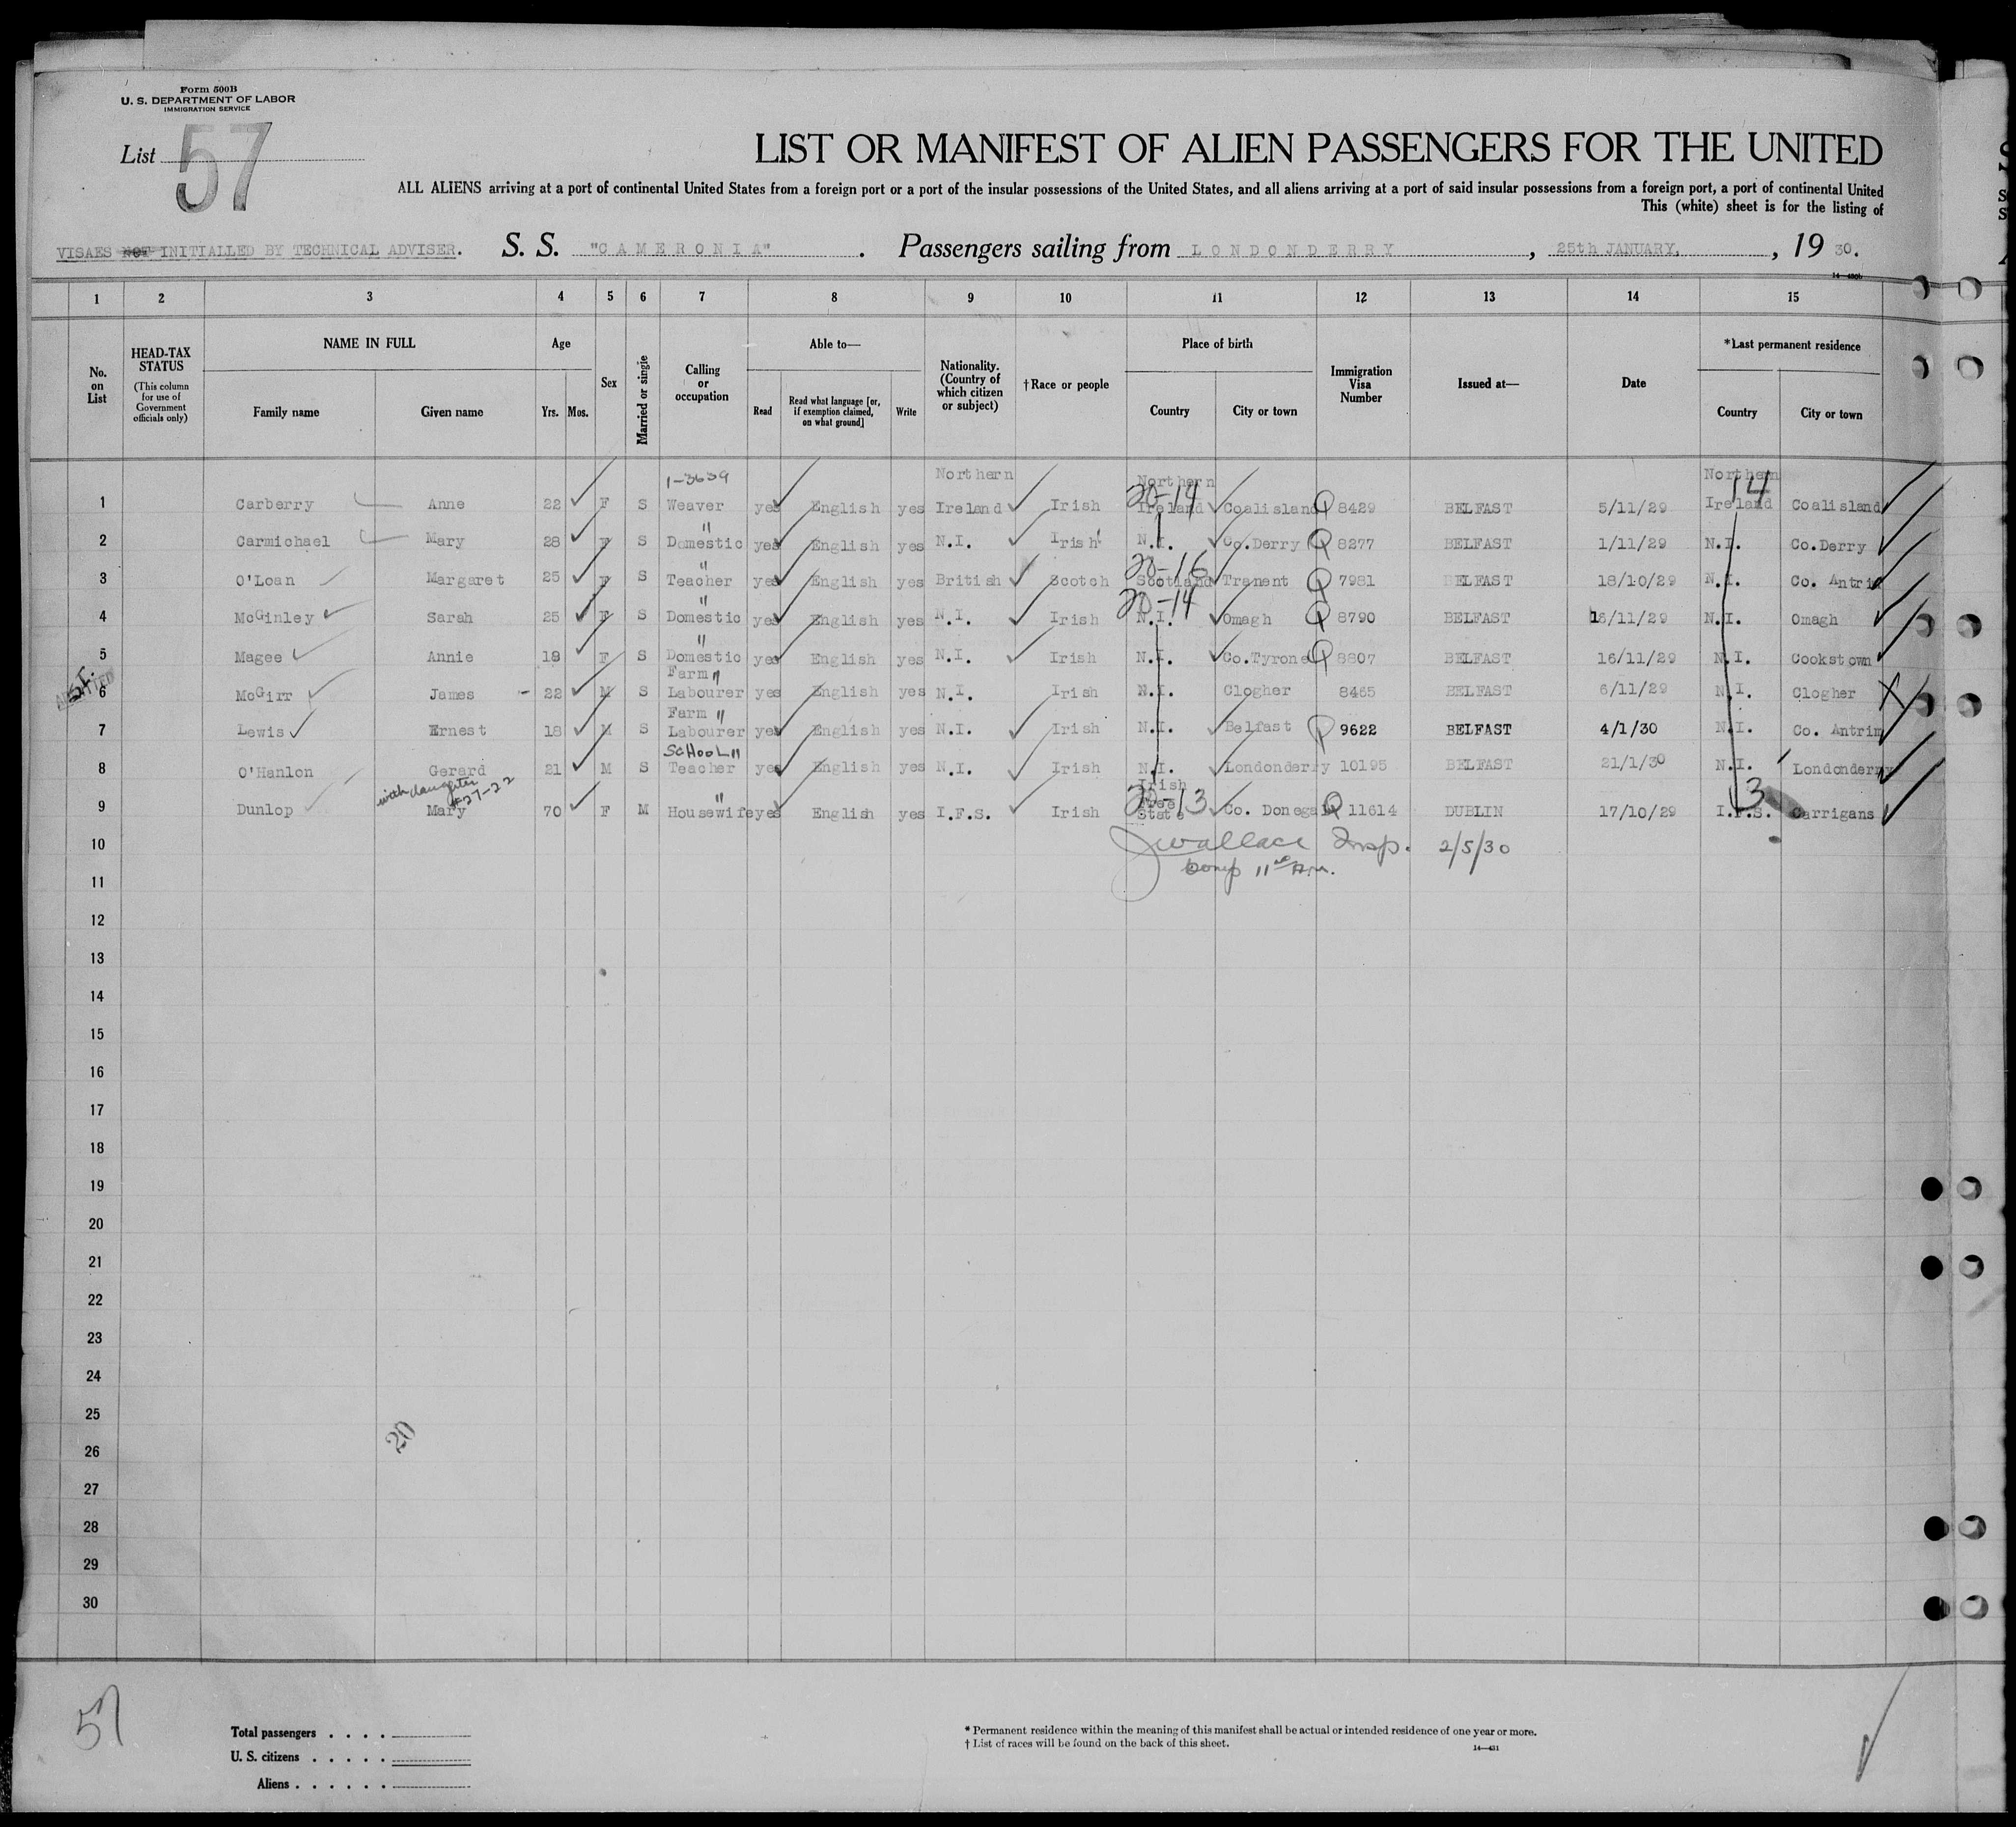 Form 500B
U. S. DEPARTMENT OF LABOR
IMMIGRATION SERVICE
List 57
LIST OR MANIFEST OF ALIEN PASSENGERS FOR THE UNITED
ALL ALIENS arriving at a port of continental United States from a foreign port or a port of the insular possessions of the United States, and all aliens arriving at a port of said insular possessions from a foreign port, a port of continental United
This (white) sheet is for the listing of
VISAES NOT INITIALLED BY TECHNICAL ADVISER. S. S. "CAMERONIA". Passengers sailing from LONDONDERRY, 25th JANUARY, 1930.
14—430b
1 2 3 4 5 6 7 8 9 10 11 12 13 14 15
No. on List HEAD-TAX STATUS (This column for use of Government officials only) NAME IN FULL Family name Given name Age Yrs. Mos. Sex Married or single Calling or occupation Able to— Read Read what language [or, if exemption claimed, on what ground] Write Nationality. (Country of which citizen or subject) †Race or people Place of birth Country City or town Immigration Visa Number Issued at— Date *Last permanent residence Country City or town
1-3639 Northern Northern Northern
20-14 14
1 Carberry Anne 22 F S Weaver yes English yes Ireland Irish Ireland Coalisland Q 8429 BELFAST 5/11/29 Ireland Coalisland
2 Carmichael Mary 28 F S " Domestic yes English yes N.I. Irish N.I. Co.Derry Q 8277 BELFAST 1/11/29 N.I. Co.Derry
20-16
3 O'Loan Margaret 25 F S " Teacher yes English yes British Scotch Scotland Tranent Q 7981 BELFAST 18/10/29 N.I. Co. Antrim
20-14
4 McGinley Sarah 25 F S " Domestic yes English yes N.I. Irish N.I. Omagh Q 8790 BELFAST 16/11/29 N.I. Omagh
5 Magee Annie 18 F S " Domestic yes English yes N.I. Irish N.I. Co.Tyrone Q 8807 BELFAST 16/11/29 N.I. Cookstown
ADMITTED
6 McGirr James - 22 M S Farm " Labourer yes English yes N.I. Irish N.I. Clogher 8465 BELFAST 6/11/29 N.I. Clogher X
7 Lewis Ernest 18 M S Farm " Labourer yes English yes N.I. Irish N.I. Belfast Q 9622 BELFAST 4/1/30 N.I. Co. Antrim
8 O'Hanlon Gerard 21 M S SCHOOL " Teacher yes English yes N.I. Irish N.I. Londonderry 10195 BELFAST 21/1/30 N.I. Londonderry
with daughter #27-22
20-13 13
9 Dunlop Mary 70 F M " Housewife yes English yes I.F.S. Irish Irish Free State Co. Donegal Q 11614 DUBLIN 17/10/29 I.F.S. Carrigans
10 J Wallace Insp. 2/5/30
11
12
13
14
15
16
17
18
19
20
21
22
23
24
25
20
26
27
28
29
30
57
Total passengers . . . .
U. S. citizens . . . . .
Aliens . . . . . .
* Permanent residence within the meaning of this manifest shall be actual or intended residence of one year or more.
† List of races will be found on the back of this sheet.
14—431